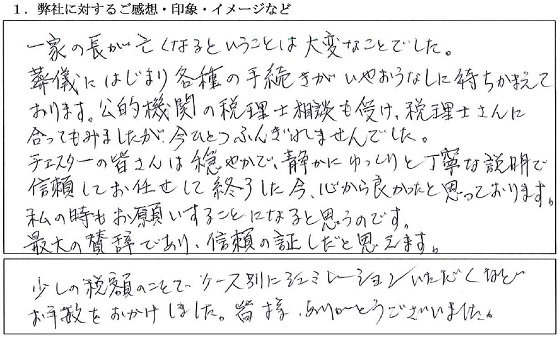 1. 弊社に対するご感想・印象・イメージなど
一家の長が亡くなるということは大変なことでした。
葬儀にはじまり各種の手続きがいやおうなしに待ちかまえて
おります。公的機関の税理士相談も受け、税理士さんに
合ってもみましたが、今ひとつふんぎれませんでした。
チェスターの皆さんは穏やかで、静かにゆっくりと丁寧な説明で
信頼してお任せして終了した今、心から良かったと思っております。
私の時もお願いすることになると思うのです。
最大の賛辞であり、信頼の証しだと思えます。
少しの税額のことで、ケース別にシュミレーションいただくなど
お手数をおかけしました。皆様、ありがとうございました。